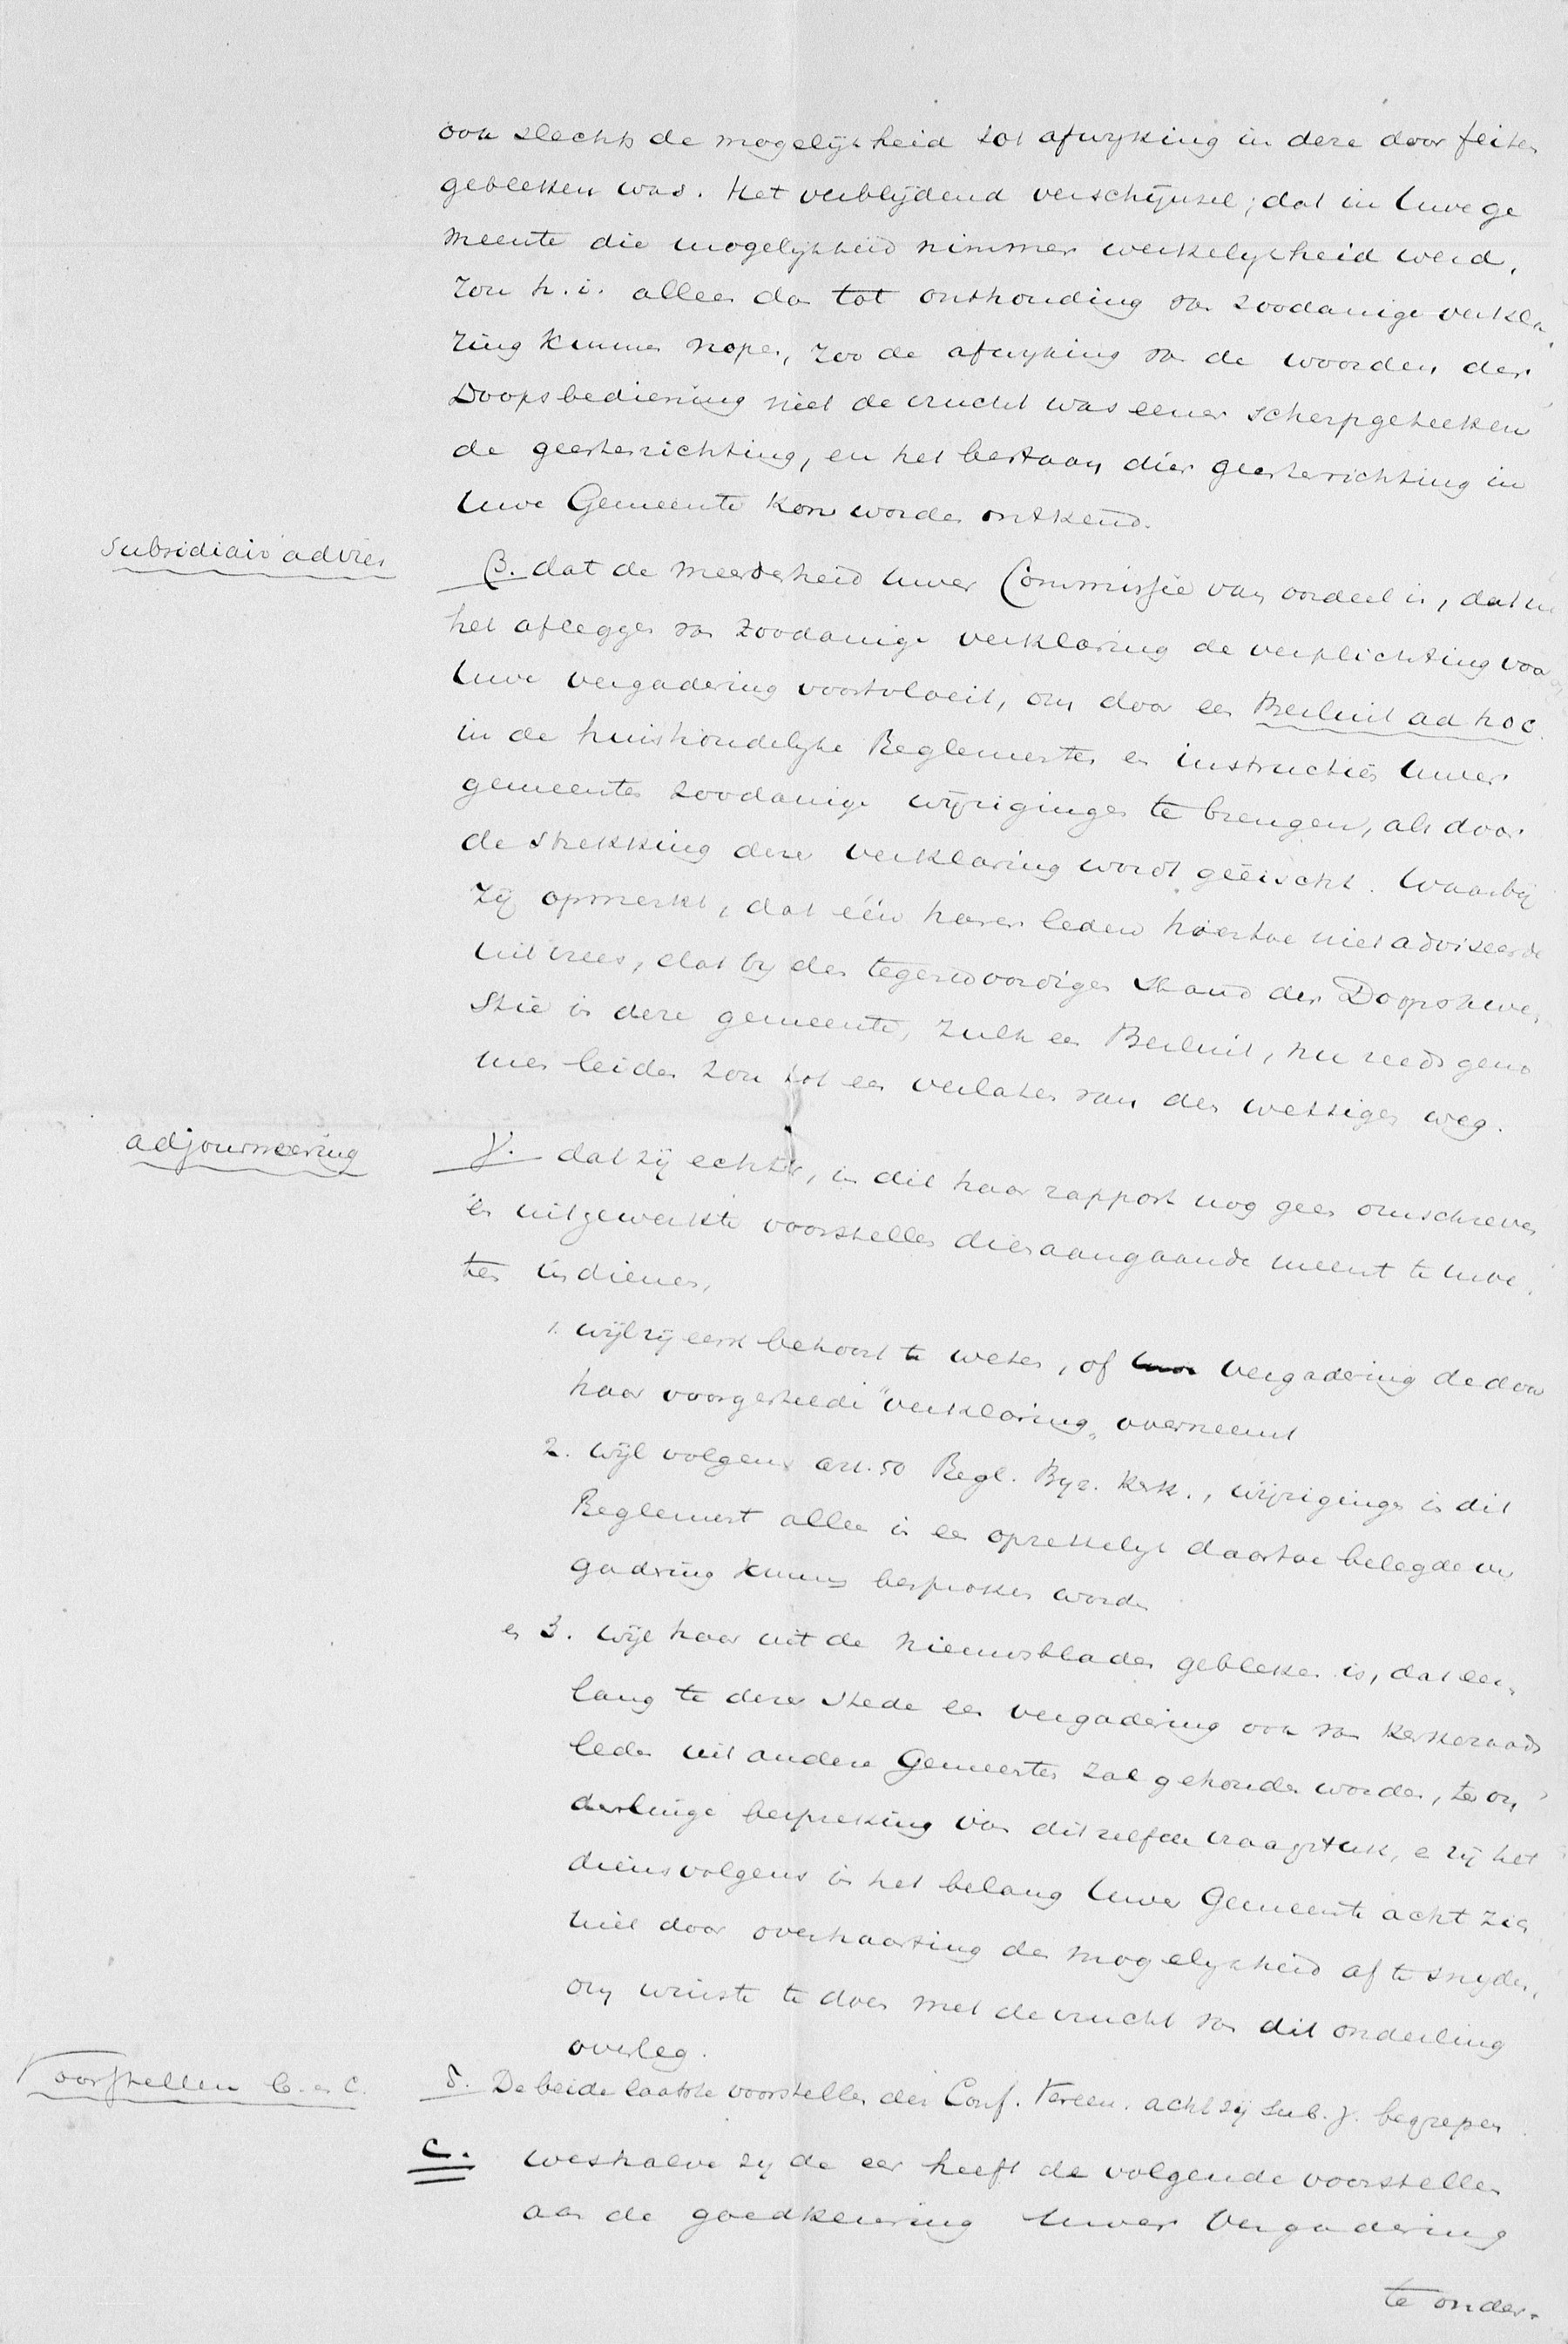 ook slechts de mogelijkheid tot afwyking in deze door feiten
gebleken was. Het verblijdend verschijnsel; dat in Uwe ge
meente die mogelijkheid nimmer werkelykheid werd,
zou h.i. alleen dan tot onthouding van zoodanige verkla
ring kunnen nopen, zoo de afwyking van de woorden der
Doopsbediening niet de vrucht was eener scherpgeteeken
de geestesrichting, en het bestaan dier geestesrichting in
Uwe Gemeente kon worden ontkend.
Subsidiair advies
β. dat de meerderheid Uwer Commissie van oordeel is, dat uit
het afleggen van zoodanige verklaring de verplichting voor
Uwe vergadering voortvloeit, om door een Besluit ad hoc
in de huishoudelyke Reglementen en instructiën Uwer
gemeente zoodanige wijzigingen te brengen, als door
de strekking dezer verklaring wordt geëischt. Waarbij
zij opmerkt, dat één harer leden hiertoe niet adviseerde
uit vrees, dat by den tegenwoordigen stand der Doopskwe
stie in deze gemeente, zulk een Besluit, nu reeds geno
men leiden zou tot een verlaten van den wettigen weg.
adjourneering
γ. dat zij echter, in dit haar rapport nog geen omschreven
en uitgewerkte voorstellen dienaangaande meent te moe
ten indienen,
1. wijl zij eerst behoort te weten, of Uwe vergadering de door
haar voorgestelde "verklaring" overneemt
2. wijl volgens art. 50 Regl. Byz. Kerk., wijzigingen in dit
Reglement alleen in een opzettelyk daartoe belegde ver
gadring kunnen besproken worden
en 3. wijl haar uit de Nieuwsbladen gebleken is, dat eer
lang te dezer stede een vergadering ook van Kerkeraads
leden uit andere Gemeenten zal gehouden worden, ter on
derlinge bespreking van ditzelfde vraagstuk, en zij het
diensvolgens in het belang Uwer Gemeente acht zich
niet door overhaasting de mogelykheid af te snyden,
om winste te doen met de vrucht van dit onderling
overleg.
Voorstellen B. en C.
δ. De beide laatste voorstellen der Conf. Vereen. acht zij sub. γ. begrepen
C. weshalve zy de eer heeft de volgende voorstellen
aan de goedkeuring Uwer Vergadering
te onder-